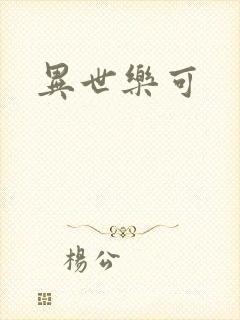 異世樂可
楊公